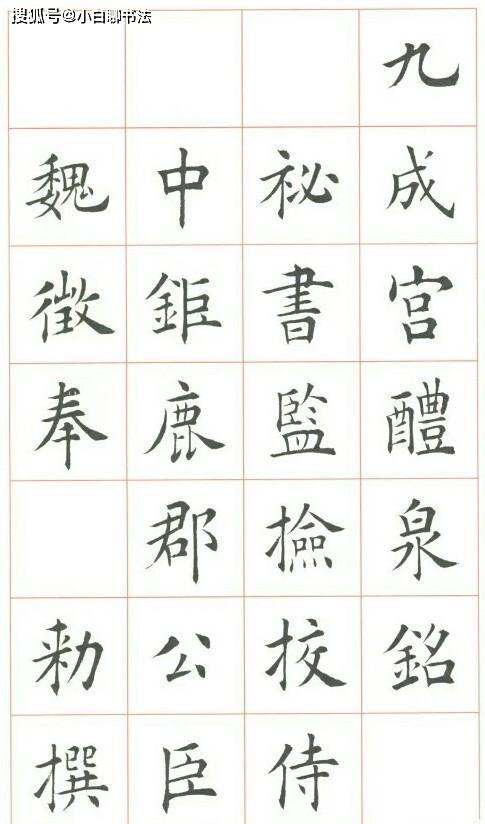 搜狐号@小白聊书法
九成宫醴泉銘
祕書監撿挍侍
中鉅鹿郡公臣
魏徵奉勑撰